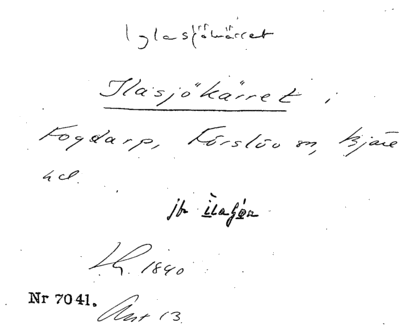 Iglasjökärret
Ilasjökärret i
Fogdarp, Förslöv sn, Bjäre
hd.
jfr Ilasjön
Lh. 1840
Nr 7041. Akt 13